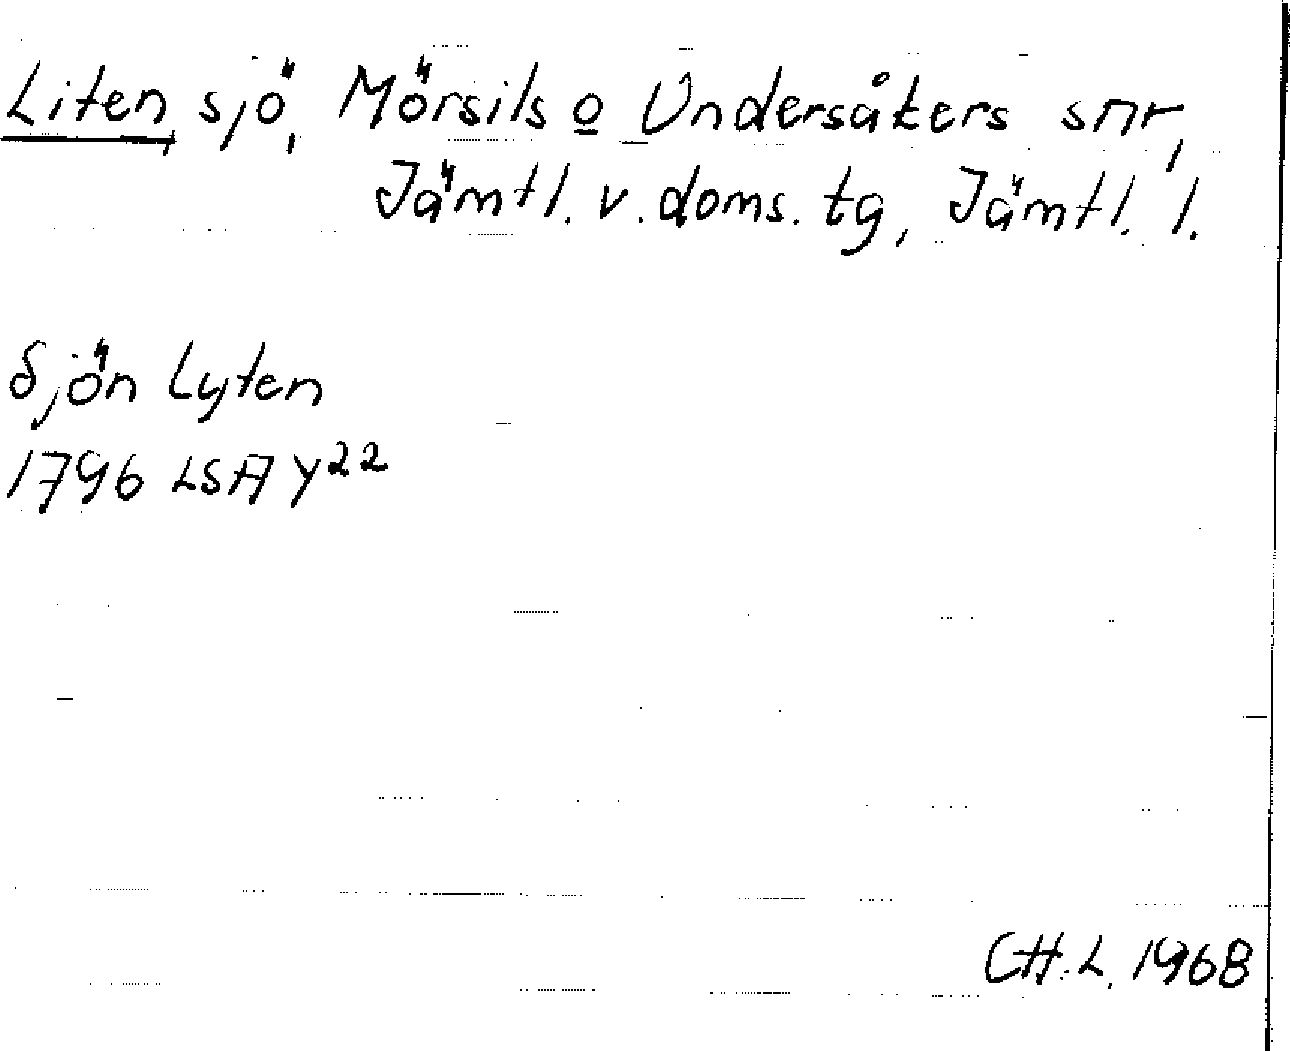 Liten, sjö, Mörsils o Undersåkers snr,
Jämtl. v. doms. tg, Jämtl. l.
Sjön Lyten
1796 LSA Y22
CH.L. 1968